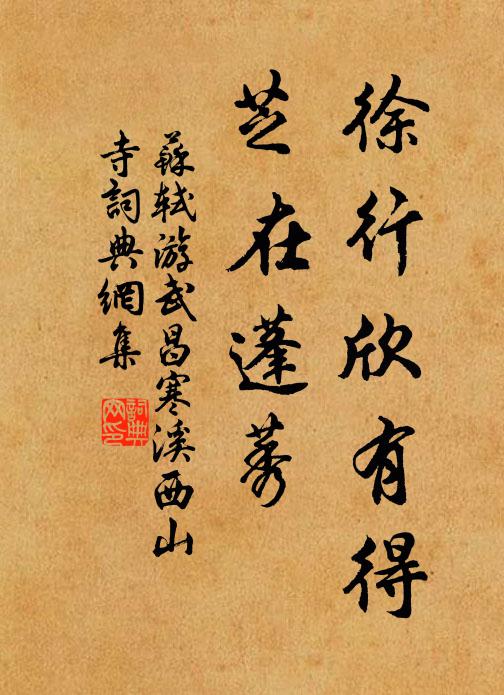 徐行欣有得
芝在蓬莠
蘇軾游武昌寒溪西山
寺詞典網集
詞典網印